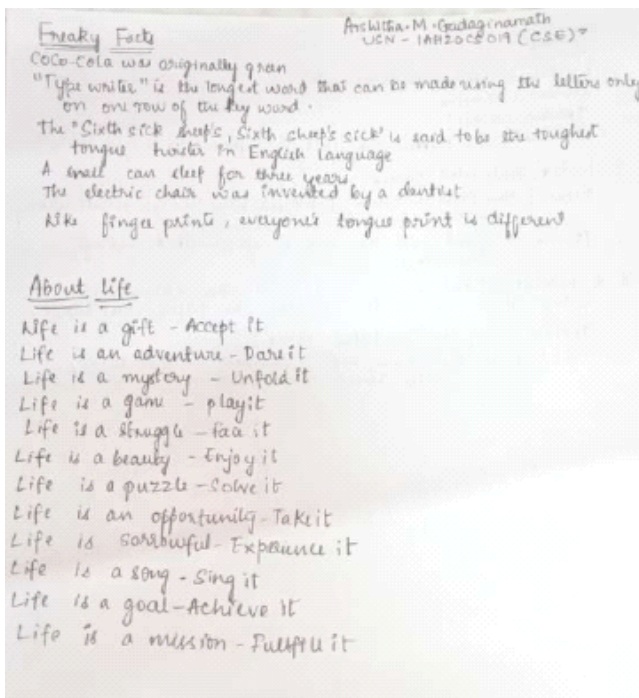 Freaky Facts
Arshitha.M.Gadaginamath
USN - 1AH20CS019 (CSE)
Coco-Cola was originally green
"Type writer" is the longest word that can be made using the letters only
on one row of the key word.
The "Sixth sick sheep's, Sixth sheep's sick" is said to be the toughest
tongue twister in English language
A snail can sleep for three years
The electric chair was invented by a dentist
Like finger prints, everyone's tongue print is different
About life
Life is a gift - Accept it
Life is an adventure - Dare it
Life is a mystery - Unfold it
Life is a game - play it
Life is a struggle - face it
Life is a beauty - Enjoy it
Life is a puzzle - Solve it
Life is an opportunity - Take it
Life is sorrowful - Experience it
Life is a song - Sing it
Life is a goal - Achieve it
Life is a mission - Fullfill it